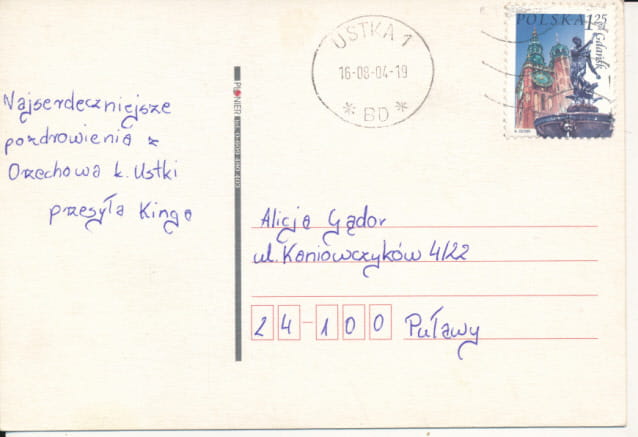 USTKA 1
16-08-04-19
* BD *
POLSKA 1,25 zł
Gdańsk
PIONIER
Najserdeczniejsze
pozdrowienia z
Orzechowa k. Ustki
przesyła Kinga
Alicja Gądor
ul. Kaniowczyków 4/22
24-100 Puławy